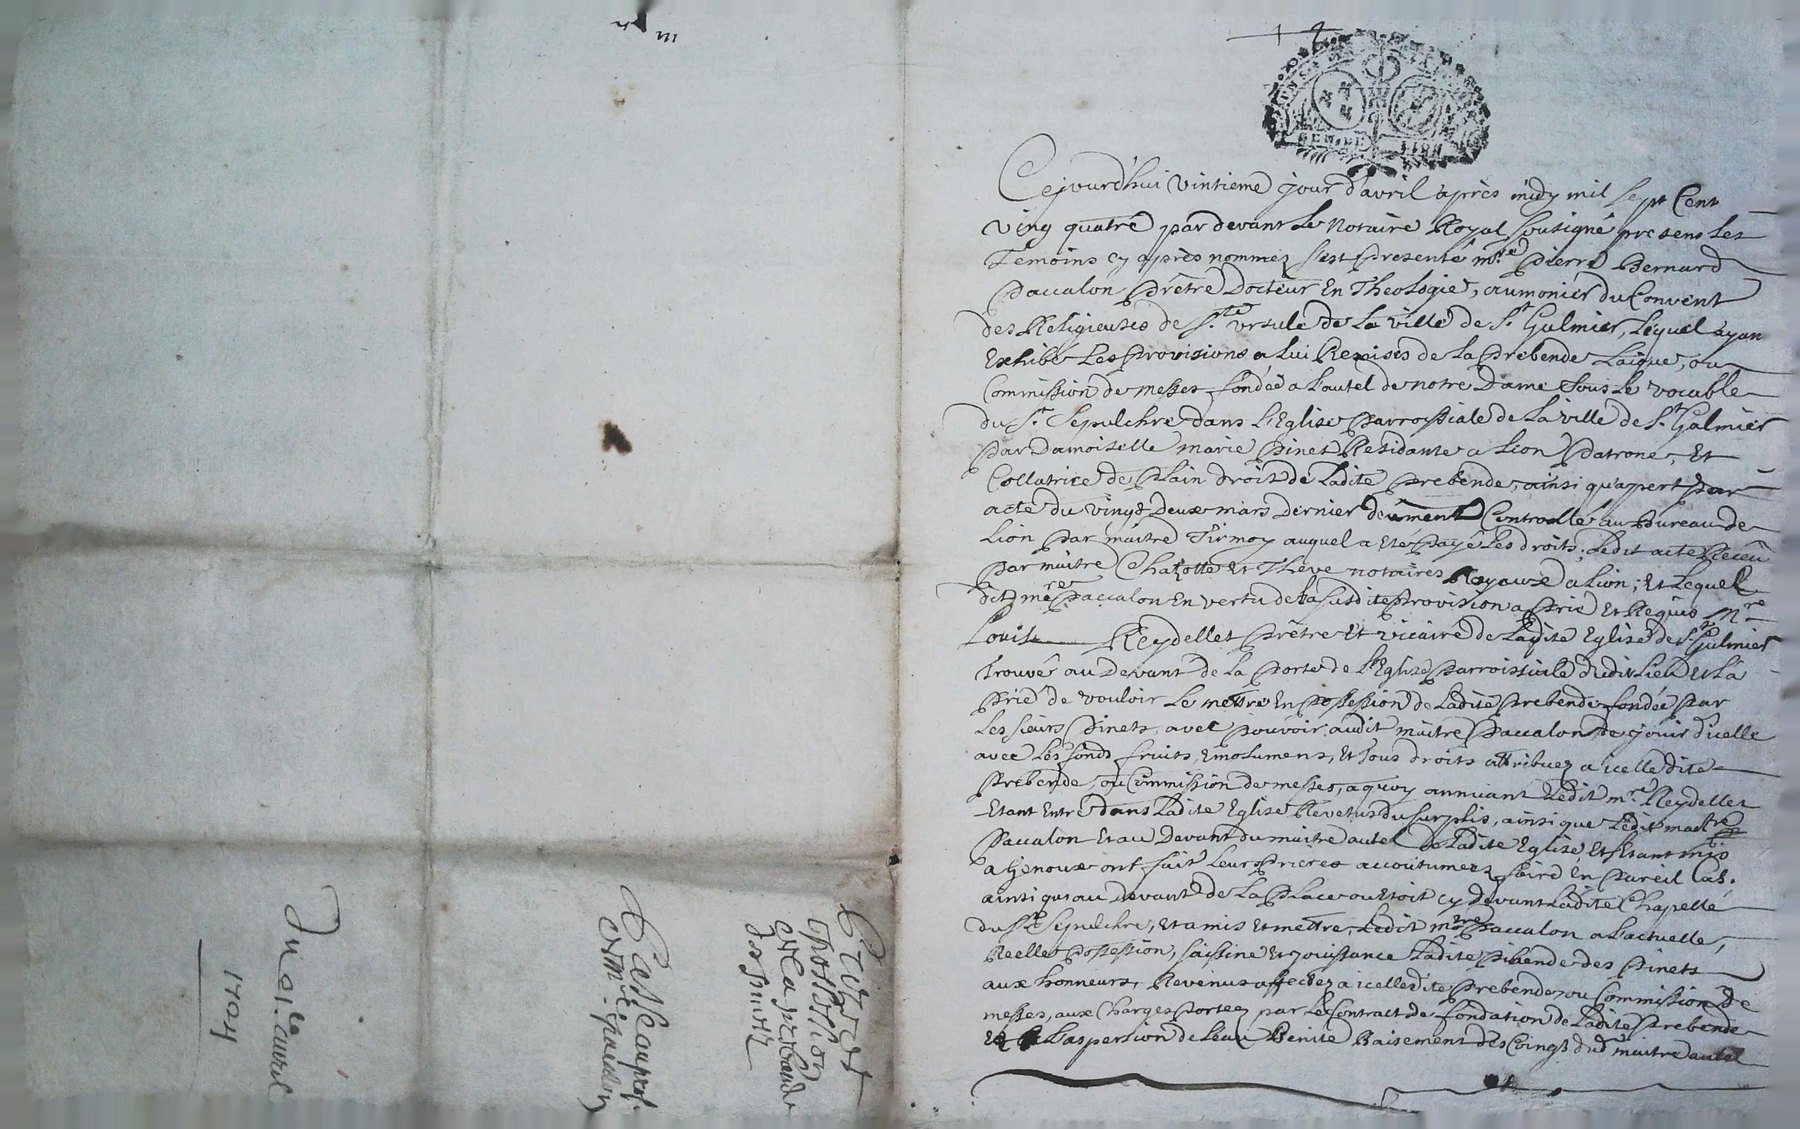 Cejourd'hui vintieme jour d'avril après midy mil sept Cent
ving quatre par devant Le Notaire Royal soutigné presens Les
Temoins cy après nommez s'est Presenté mre Pierre Bernard
Paccalon Prêtre Docteur En Theologie, aumonier du Convent
des Religieuses de Ste Ursule de La ville de St Galmier, Lequel ayan
Exhibé Les Provisions a Lui Remises de La Prebende Laique, ou
Commission de messes fondée a Lautel de notre Dame sous Le vocable
du St Sepulchre dans L'Eglise Parrossiale de La ville de St Galmier
Par Damoiselle marie Pinet Residante a Lion Patrone, Et
Collatrice de Plain droit de Ladite Prebende, ainsi qu'apert Par
acte du vingt Deux mars dernier deument Controllé au Bureau de
Lion Par maitre Tirmoy auquel a Eté Payé Les droits, Ledit acte Receu
Par maitre Chazotte Et Theve notaires Royaux a Lion; Et Lequel
dit mre Paccalon En vertu de La susdite Provision a Prié Et Requis Mre
Louis Reydellet Prêtre Et vicaire de Ladite Eglise de St Galmier
Trouvé au Devant de La Porte de L'Eglise Parroissiale dudit Lieu Et La
Prié de vouloir Le mettre En Possession de Ladite Prebende fondée Par
Les sieurs Pinets, avec Pouvoir audit maitre Paccalon de jouir d'icelle
avec Les fonds fruits, Emolumens, Et tous droits attribuez a icelle dite
Prebende, ou Commission de messes, a quoy annuant Ledit mre Reydellet
Etant Entré dans Ladite Eglise Revetus du surplis, ainsi que Ledit maitre
Paccalon Et au Devant du maitre autel de Ladite Eglise, Et s'Etant mis
a Genoux ont fait Leurs Prieres accoutumez faire En Pareil Cas.
ainsi qu'au Devant de La Place ou Etoit cy devant Ladite Chapelle
du St Sepulchre, Et a mis Et mettre Ledit mtre Paccalon a Lactuelle,
Reelle Possession, saisine Et Jouissance Ladite Prebende des Pinets
aux honneurs, Revenus affectez a icelle dite Prebende, ou Commission de
messes, aux Charges Portez par Le Contract de fondation de Ladite Prebende
Et Laspersion de Leau Benite Baisement des Coings dud maitre autel
possession
de la prebande
des pinetz
avril
1724